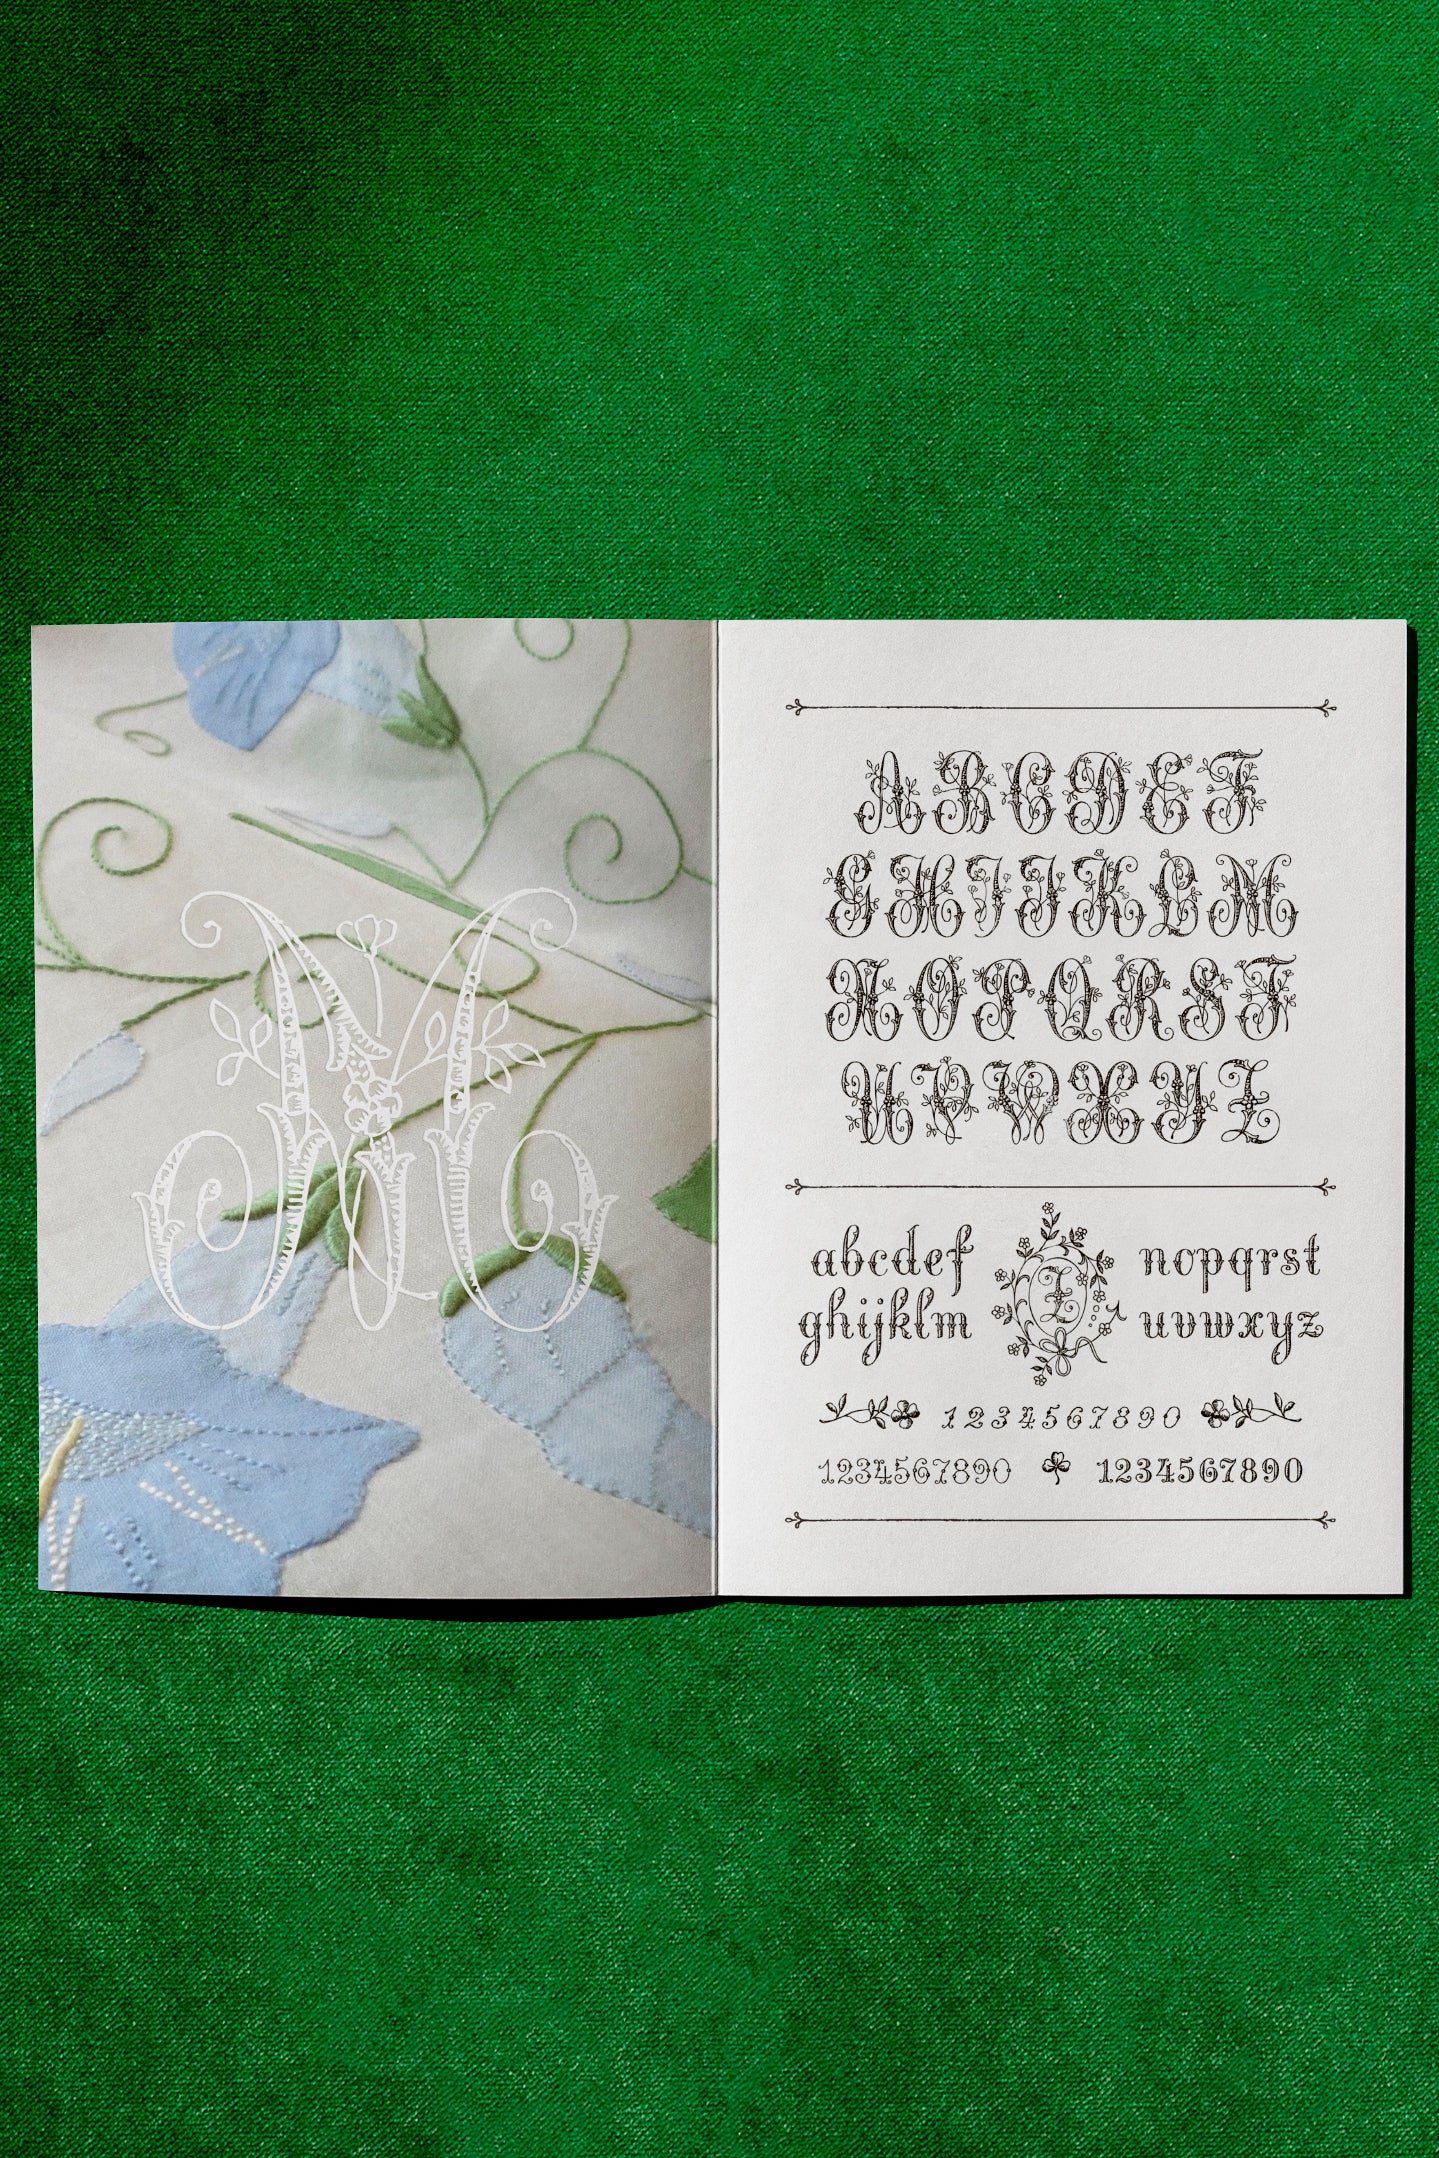 M
A B C D E F
G H I J K L M
N O P Q R S T
U V W X Y Z
abcdef
ghijklm
Z
nopqrst
uvwxyz
1 2 3 4 5 6 7 8 9 0
1234567890
1234567890